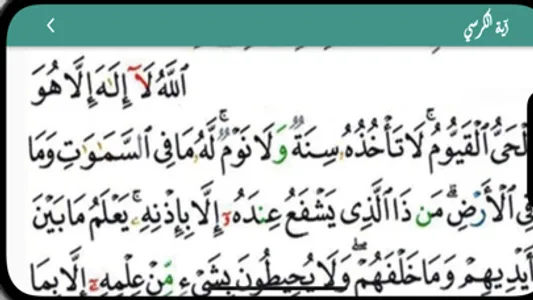 آية الكرسي
ٱللَّهُ لَآ إِلَٰهَ إِلَّا هُوَ
ٱلْحَىُّ ٱلْقَيُّومُ ۚ لَا تَأْخُذُهُۥ سِنَةٌ وَلَا نَوْمٌ ۚ لَّهُۥ مَا فِى ٱلسَّمَٰوَٰتِ وَمَا
فِى ٱلْأَرْضِ ۗ مَن ذَا ٱلَّذِى يَشْفَعُ عِندَهُۥٓ إِلَّا بِإِذْنِهِۦ ۚ يَعْلَمُ مَا بَيْنَ
أَيْدِيهِمْ وَمَا خَلْفَهُمْ ۖ وَلَا يُحِيطُونَ بِشَىْءٍ مِّنْ عِلْمِهِۦٓ إِلَّا بِمَا